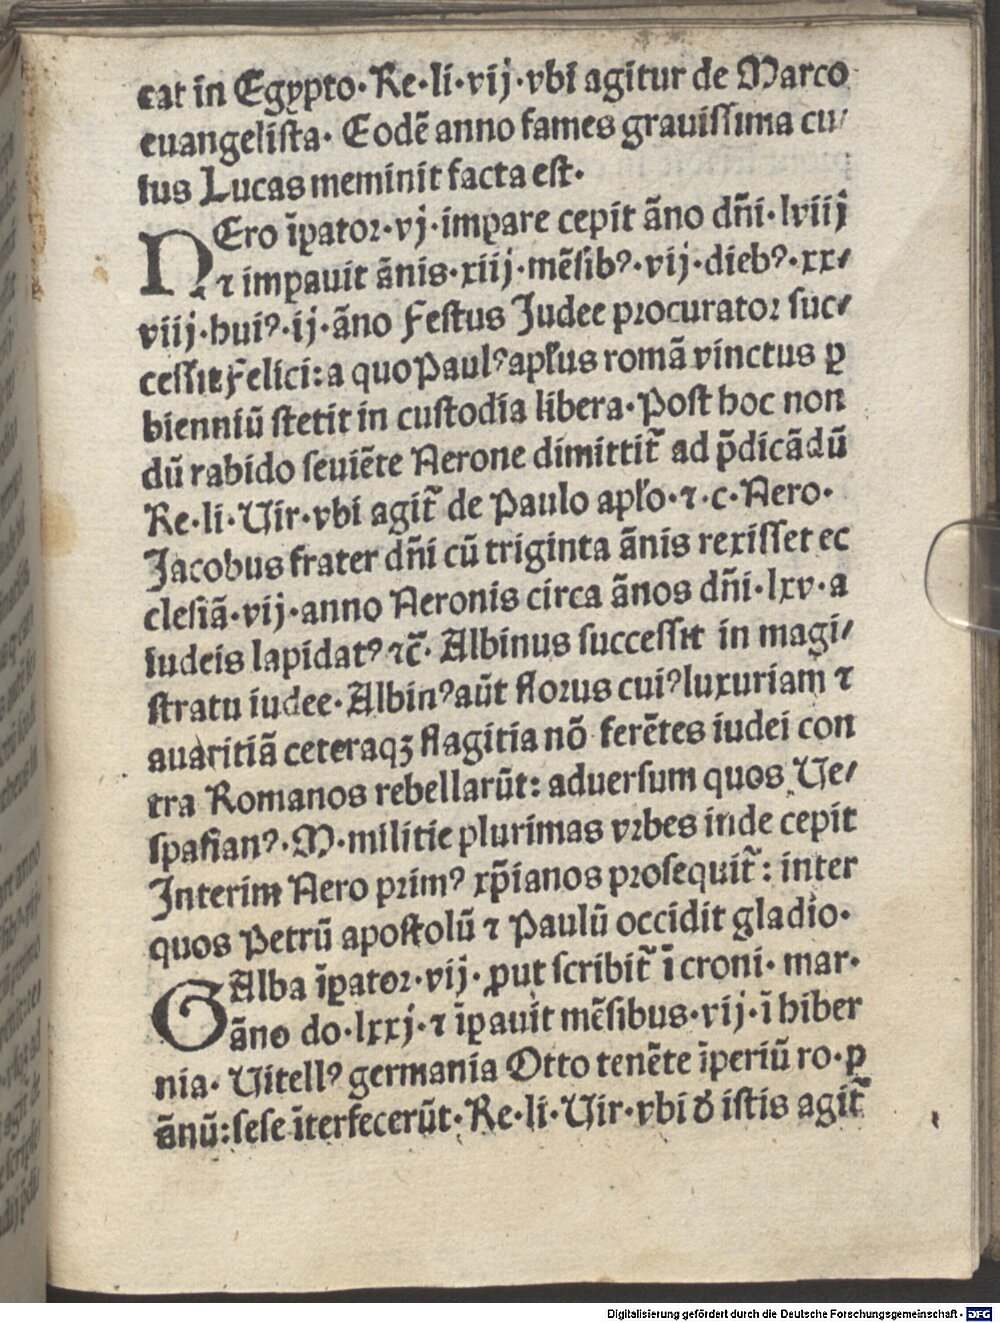 cat in Egypto·Re·li·vij·vbi agitur de Marco
euangelista· Eodē anno fames grauissima cu/
ius Lucas meminit facta est·
NEro īꝑator·vj·imꝑare cepit āno dn̄i·lviij
⁊ imꝑauit ānis·xiij·mēsibꝰ·vij·diebꝰ·xx/
viij·huiꝰ·ij·āno Festus Judee procurator suc/
cessit Felici:a quo Paulꝰ apl̄us romā vinctus ꝑ
bienniū stetit in custodia libera·Post hoc non
dū rabido seuiēte Nerone dimittit̄ ad p̄dicādū
Re·li·Vir·vbi agit̄ de Paulo apl̄o·⁊·c·Nero·
Jacobus frater dn̄i cū triginta ānis rexisset ec
clesiā·vij·anno Neronis circa ānos dn̄i·lxv·a
iudeis lapidatꝰ ⁊c̄· Albinus successit in magi/
stratu iudee·Albinꝰ aūt florus cuiꝰ luxuriam ⁊
auaritiā ceteraqꝫ flagitia nō ferētes iudei con
tra Romanos rebellarūt: aduersum quos Ve/
spasianꝰ·M·militie plurimas vrbes inde cepit
Interim Nero primꝰ xp̄ianos prosequit̄: inter
quos Petrū apostolū ⁊ Paulū occidit gladio·
GAlba īꝑator·vij·ꝓut scribit̄ ī croni·mar·
āno do·lxxj·⁊ īꝑauit mēsibus·vij·ī hiber
nia· Vitellꝰ germania Otto tenēte īperiū ro·ꝑ
ānū:sese īterfecerūt·Re·li·Vir·vbi ḋ istis agit̄
Digitalisierung gefördert durch die Deutsche Forschungsgemeinschaft · DFG